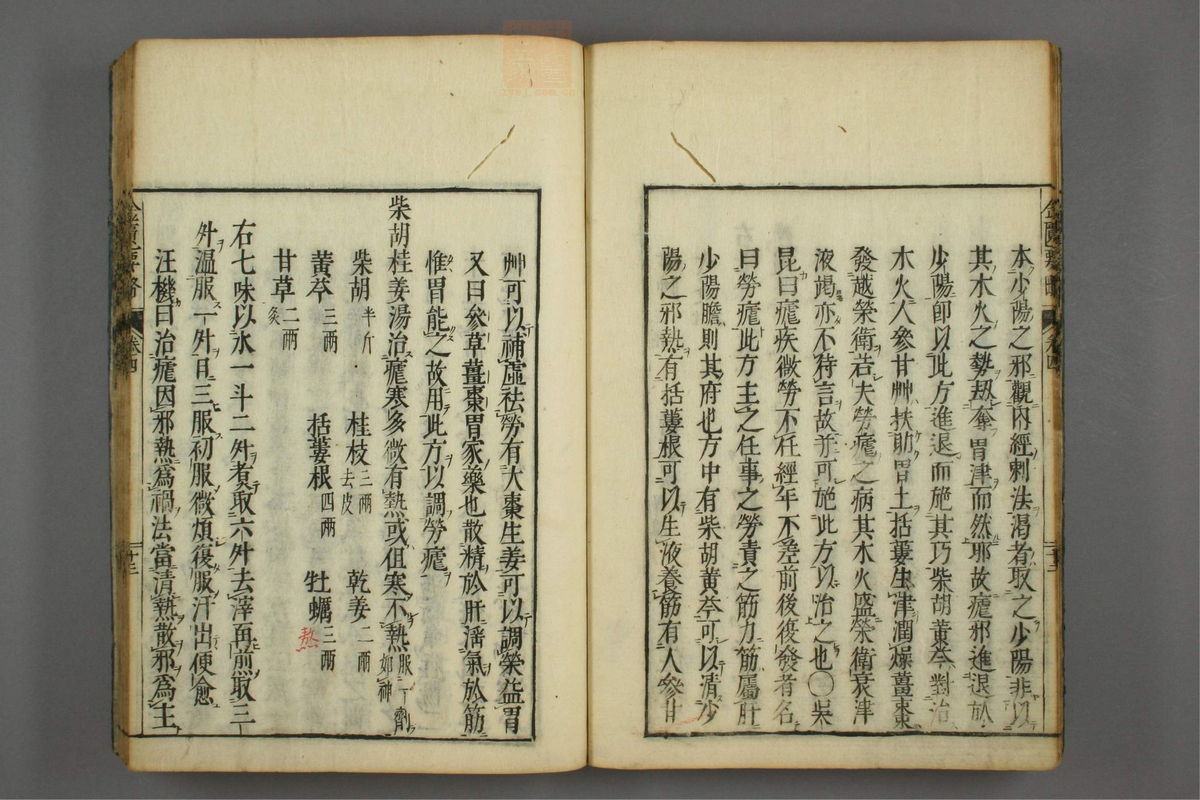 本少陽之邪觀内經刺法渴者取之少陽非以
其木火之勢刼奪胃津而然耶故瘧邪進退於
少陽即以此方進退而施其巧柴胡黄芩對治
木火人參甘艸扶助胃土括蔞生津潤燥薑棗
發越榮衛若夫勞瘧之病其木火盛榮衛衰津
液竭亦不待言故并可施此方以治之也○吴
昆曰瘧疾微勞不任經年不差前後復發者名
曰勞瘧此方主之任事之勞責之筋力筋屬肝
少陽膽則其府也方中有柴胡黄芩可以清少
陽之邪熱有括蔞根可以生液養筋有人參甘
艸可以補虛祛勞有大棗生姜可以調榮益胃
又曰參草薑棗胃家藥也散精於肝淫氣於筋
惟胃能之故用此方以調勞瘧
柴胡桂姜湯治瘧寒多微有熱或但寒不熱服一劑如神
柴胡半斤 桂枝三兩去皮 乾姜二兩
黄芩三兩 括蔞根四兩 牡蠣三兩 熬
甘草二兩炙
右七味以水一斗二升煮取六升去滓再煎取三
升温服一升日三服初服微煩復服汗出便愈
汪機曰治瘧因邪熱爲禍法當清熱散邪爲主
卷四
十三